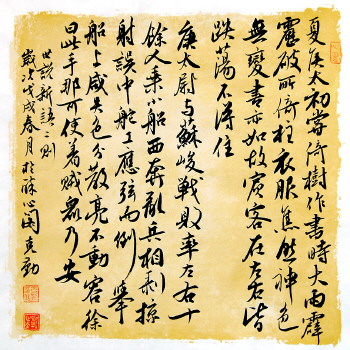 夏侯太初嘗倚樹作書時大雨霹
靂破所倚柱衣服焦然神色
無變書亦如故賓客在左右皆
跌蕩不得住
庾太尉與蘇峻戰敗率左右十
餘人乘小船西奔亂兵相剝掠
射誤中舵工應弦而倒舉
船上咸失色分散亮不動容徐
曰此手那可使著賊眾乃安
世說新語二則
歲次戊戌春月於